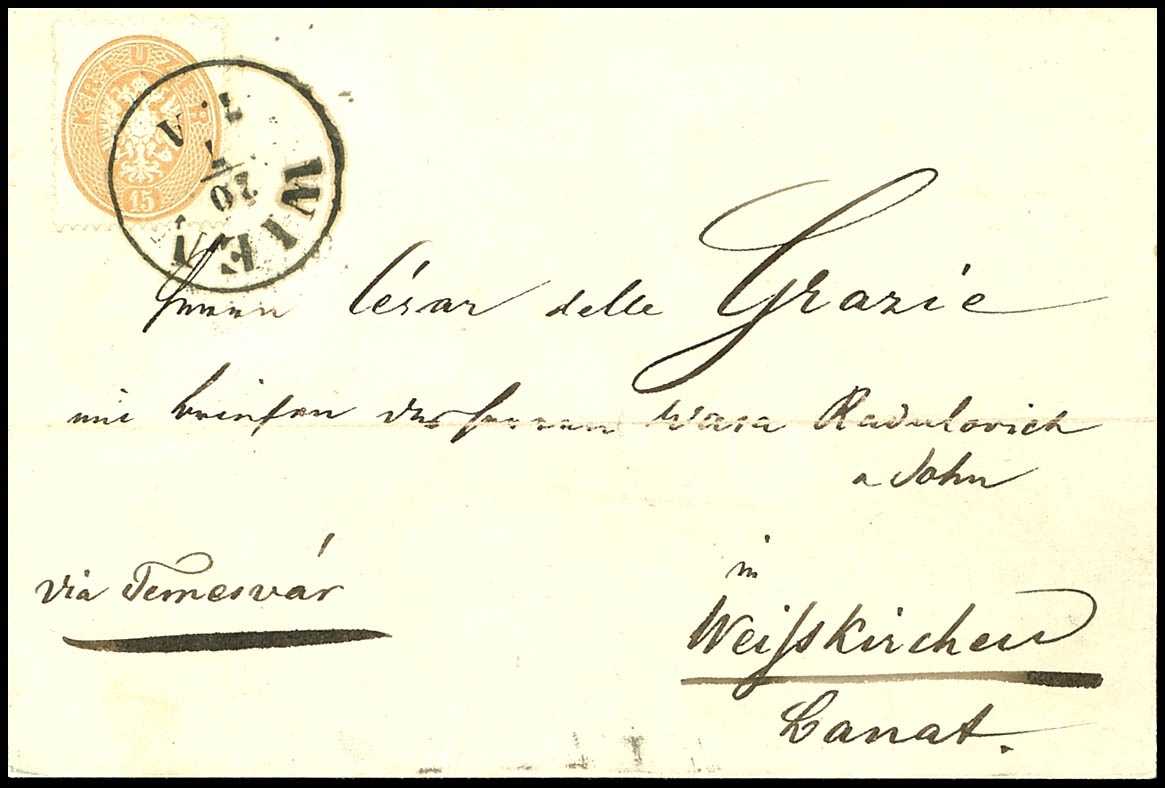 KREUZER
15
WIEN
20
7
Herrn César delle Grazie
mit Briefen des Herren Wasa Radulovich
a Sohn
via Temesvár
in
Weißkirchen
Banat.